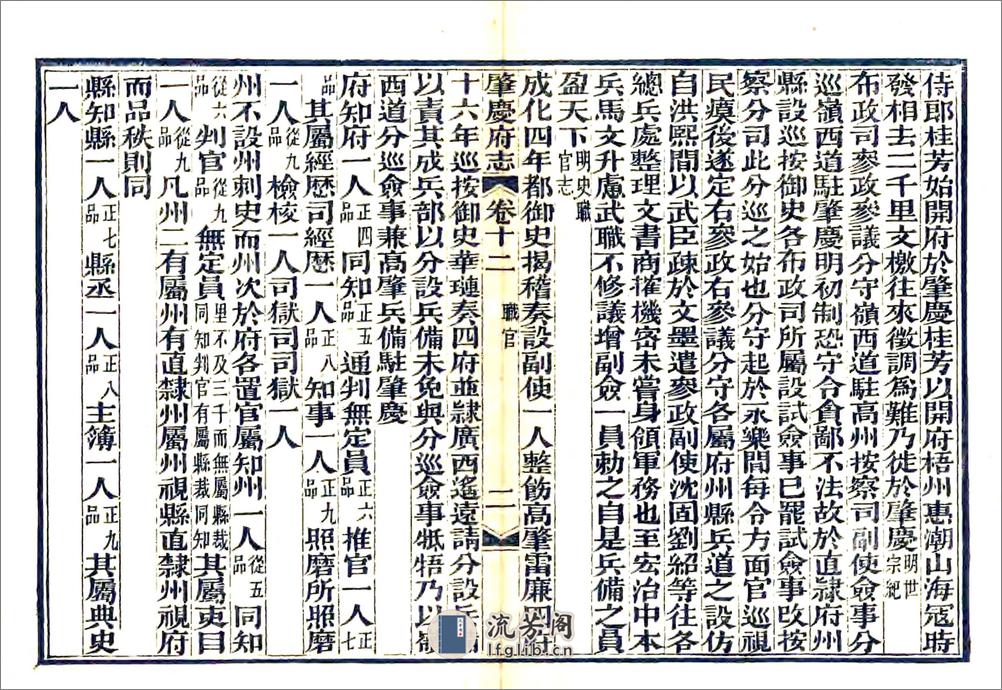 侍郎桂芳始開府於肇慶桂芳以開府梧州惠潮山海冦時
發相去二千里文檄往來徵調為難乃徙於肇慶明世宗紀
布政司參政參議分守嶺西道駐高州按察司副使僉事分
巡嶺西道駐肇慶明初制恐守令貪鄙不法故於直隷府州
縣設巡按御史各布政司所屬設試僉事已罷試僉事改按
察分司此分巡之始也分守起於永樂間每令方面官巡視
民瘼後遂定右參政右參議分守各屬府州縣兵道之設仿
自洪熙間以武臣疎於文墨遣參政副使沈固劉紹等往各
總兵處整理文書商搉機密未嘗身領軍務也至宏治中本
兵馬文升慮武職不修議增副僉一員勅之自是兵備之員
盈天下明史職官志
成化四年都御史揭稽奏設副使一人整飭高肇雷廉四府
十六年巡按御史華璉奏四府並隷廣西遙遠請分設兵備
以責其成兵部以分設兵備未免與分巡僉事牴牾乃以嶺
西道分巡僉事兼高肇兵備駐肇慶
府知府一人正四品同知正五品通判無定員正六品推官一人正七
品其屬經歷司經歷一人正八品知事一人正九品照磨所照磨
一人從九品檢校一人司獄司司獄一人
州不設州刺史而州次於府各置官屬知州一人從五品同知
從六品判官從九品無定員里不及三千而無屬縣裁同知判官有屬縣裁同知其屬吏目
一人從九品凡州二有屬州有直隷州屬州視縣直隷州視府
而品秩則同
縣知縣一人正七品縣丞一人正八品主簿一人正九品其屬典史
一人
肇慶府志
卷十二
職官
二
流芳阁
lfglib.cn